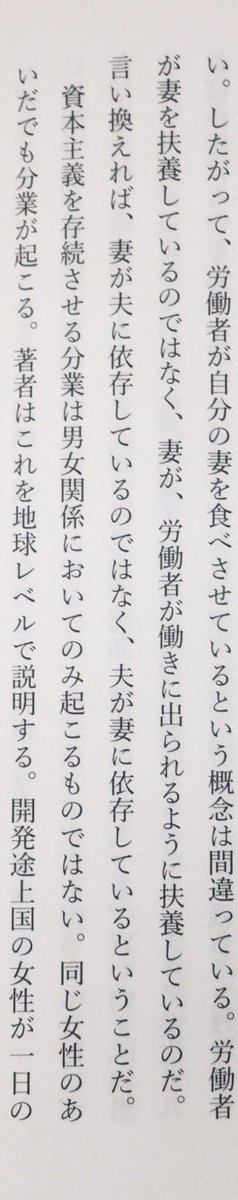 い。したがって、労働者が自分の妻を食べさせているという概念は間違っている。労働者
が妻を扶養しているのではなく、妻が、労働者が働きに出られるように扶養しているのだ。
言い換えれば、妻が夫に依存しているのではなく、夫が妻に依存しているということだ。
資本主義を存続させる分業は男女関係においてのみ起こるものではない。同じ女性のあ
いだでも分業が起こる。著者はこれを地球レベルで説明する。開発途上国の女性が一日の